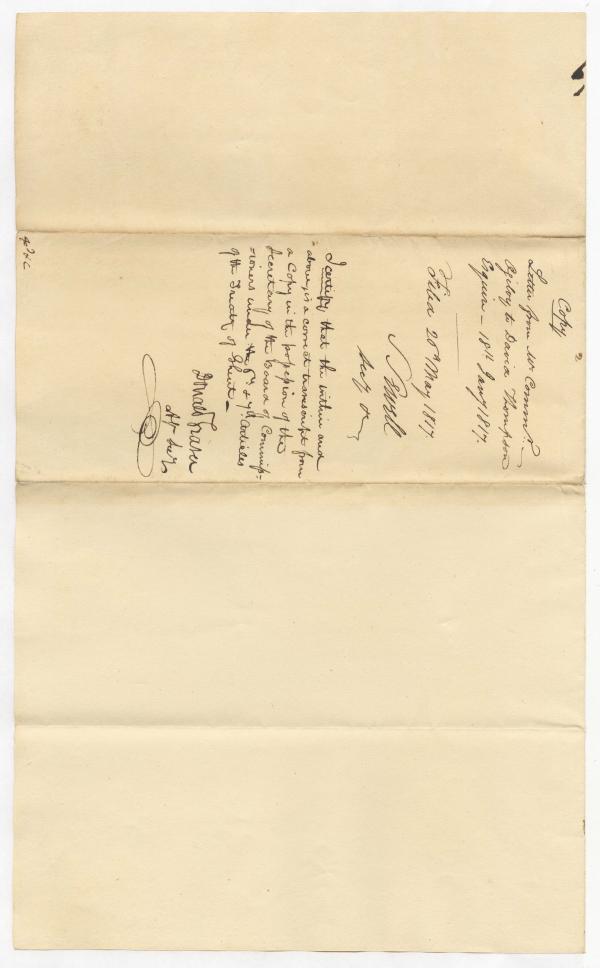 Copy
Letter from Mr Commr.
Ogilvy to David Thompson
Esquire – 18th Jany 1817.
Filed 20th May 1817
S Sewall
Secy &c
I certify that the within and
above, is a correct transcript from
a Copy in the possession of the
Secretary of the Board of Commiss-
ioners under the 6th & 7th Articles
of the Treaty of Ghent –
Donald Fraser